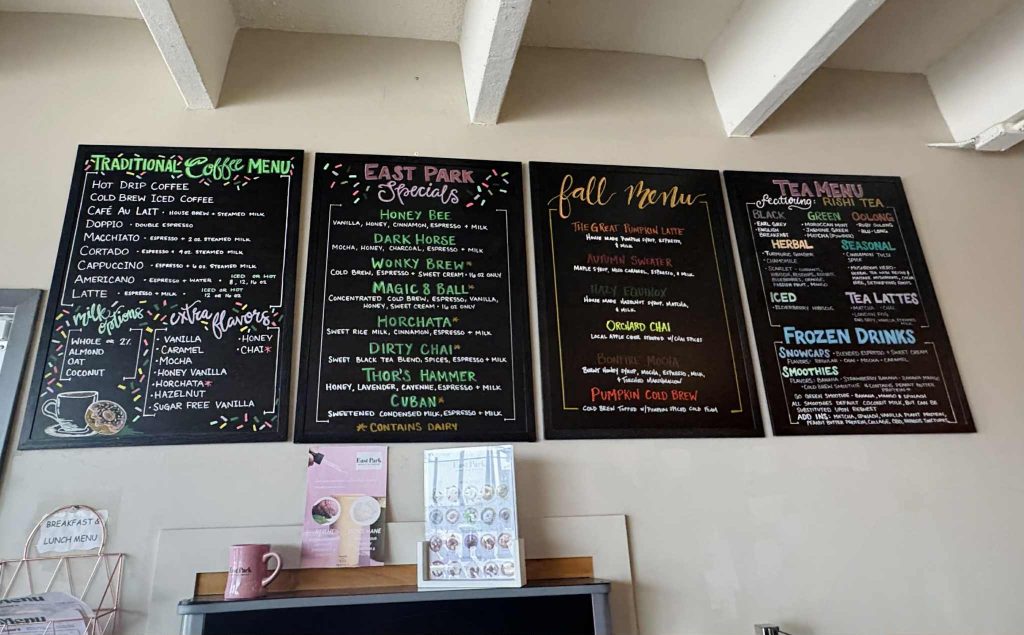 TRADITIONAL Coffee MENU
HOT DRIP COFFEE
COLD BREW ICED COFFEE
CAFÉ AU LAIT • HOUSE BREW + STEAMED MILK
DOPPIO • DOUBLE ESPRESSO
MACCHIATO • ESPRESSO + 2 OZ. STEAMED MILK
CORTADO • ESPRESSO + 4 OZ. STEAMED MILK
CAPPUCCINO • ESPRESSO + 6 OZ. STEAMED MILK
AMERICANO • ESPRESSO + WATER • ICED OR HOT 8, 12, 16 OZ
LATTE • ESPRESSO + MILK • ICED OR HOT 12 OR 16 OZ
milk options
WHOLE OR 2%
ALMOND
OAT
COCONUT
extra flavors
• VANILLA
• CARAMEL
• MOCHA
• HONEY VANILLA
• HORCHATA*
• HAZELNUT
• SUGAR FREE VANILLA
• HONEY
• CHAI*
EAST PARK
Specials
HONEY BEE
VANILLA, HONEY, CINNAMON, ESPRESSO + MILK
DARK HORSE
MOCHA, HONEY, CHARCOAL, ESPRESSO + MILK
WONKY BREW*
COLD BREW, ESPRESSO + SWEET CREAM • 16 OZ ONLY
MAGIC 8 BALL*
CONCENTRATED COLD BREW, ESPRESSO, VANILLA,
HONEY, SWEET CREAM • 16 OZ ONLY
HORCHATA*
SWEET RICE MILK, CINNAMON, ESPRESSO + MILK
DIRTY CHAI*
SWEET BLACK TEA BLEND, SPICES, ESPRESSO + MILK
THOR'S HAMMER
HONEY, LAVENDER, CAYENNE, ESPRESSO + MILK
CUBAN*
SWEETENED CONDENSED MILK, ESPRESSO + MILK
*CONTAINS DAIRY
fall Menu
THE GREAT PUMPKIN LATTE
HOUSE MADE PUMPKIN SYRUP, ESPRESSO,
& MILK
AUTUMN SWEATER
MAPLE SYRUP, CARAMEL, ESPRESSO,
& MILK
HAZY EQUINOX
HOUSE MADE HAZELNUT SYRUP, MATCHA,
& MILK
ORCHARD CHAI
LOCAL APPLE CIDER STEEPED W/ CHAI SPICES
BONFIRE MOCHA
BURNT HONEY SYRUP, MOCHA, ESPRESSO, MILK,
+ TORCHED MARSHMALLOW
PUMPKIN COLD BREW
COLD BREW TOPPED W/ PUMPKIN SPICED COLD FOAM
TEA MENU
featuring: RISHI TEA
BLACK
• EARL GREY
• ENGLISH BREAKFAST
GREEN
• MOROCCAN MINT
• JASMINE GREEN
• MATCHA (POWDER)
OOLONG
• RUBY OOLONG
HERBAL
• TURMERIC GINGER
• CHAMOMILE
SEASONAL
• CINNAMON TULSI
SPICE
• MUSHROOM HERO
ICED
• ELDERBERRY HIBISCUS
TEA LATTES
• MATCHA • CHAI
• LONDON FOG
FROZEN DRINKS
SNOWCAPS • BLENDED ESPRESSO + SWEET CREAM
FLAVORS: REGULAR • CHAI • MOCHA • CARAMEL
SMOOTHIES
FLAVORS: BANANA • STRAWBERRY BANANA • BANANA MANGO
• COLD BREW SMOOTHIE * CONTAINS PEANUT BUTTER PROTEIN *
GO GREEN SMOOTHIE • BANANA, MANGO & SPINACH
ALL SMOOTHIES DEFAULT COCONUT MILK, BUT CAN BE
SUBSTITUTED UPON REQUEST
ADD INS: • MATCHA, SPINACH, VANILLA PLANT PROTEIN,
PEANUT BUTTER PROTEIN, COLLAGEN, CBD,
BREAKFAST &
LUNCH MENU
Menu
East Park
East Park
East Park